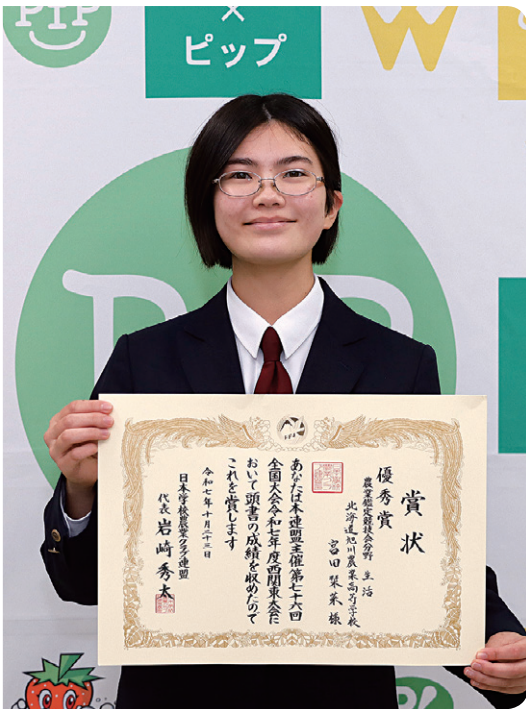 PIP
×
ピップ
W
賞状
優秀賞
農業鑑定競技会分野 生活
北海道旭川農業高等学校
宮田 梨菜 様
あなたは本連盟主催第七十六回
全国大会令和七年度西関東大会に
おいて頭書の成績を収めたので
これを賞します
令和七年十月二十三日
日本学校農業クラブ連盟
代表 岩崎秀太